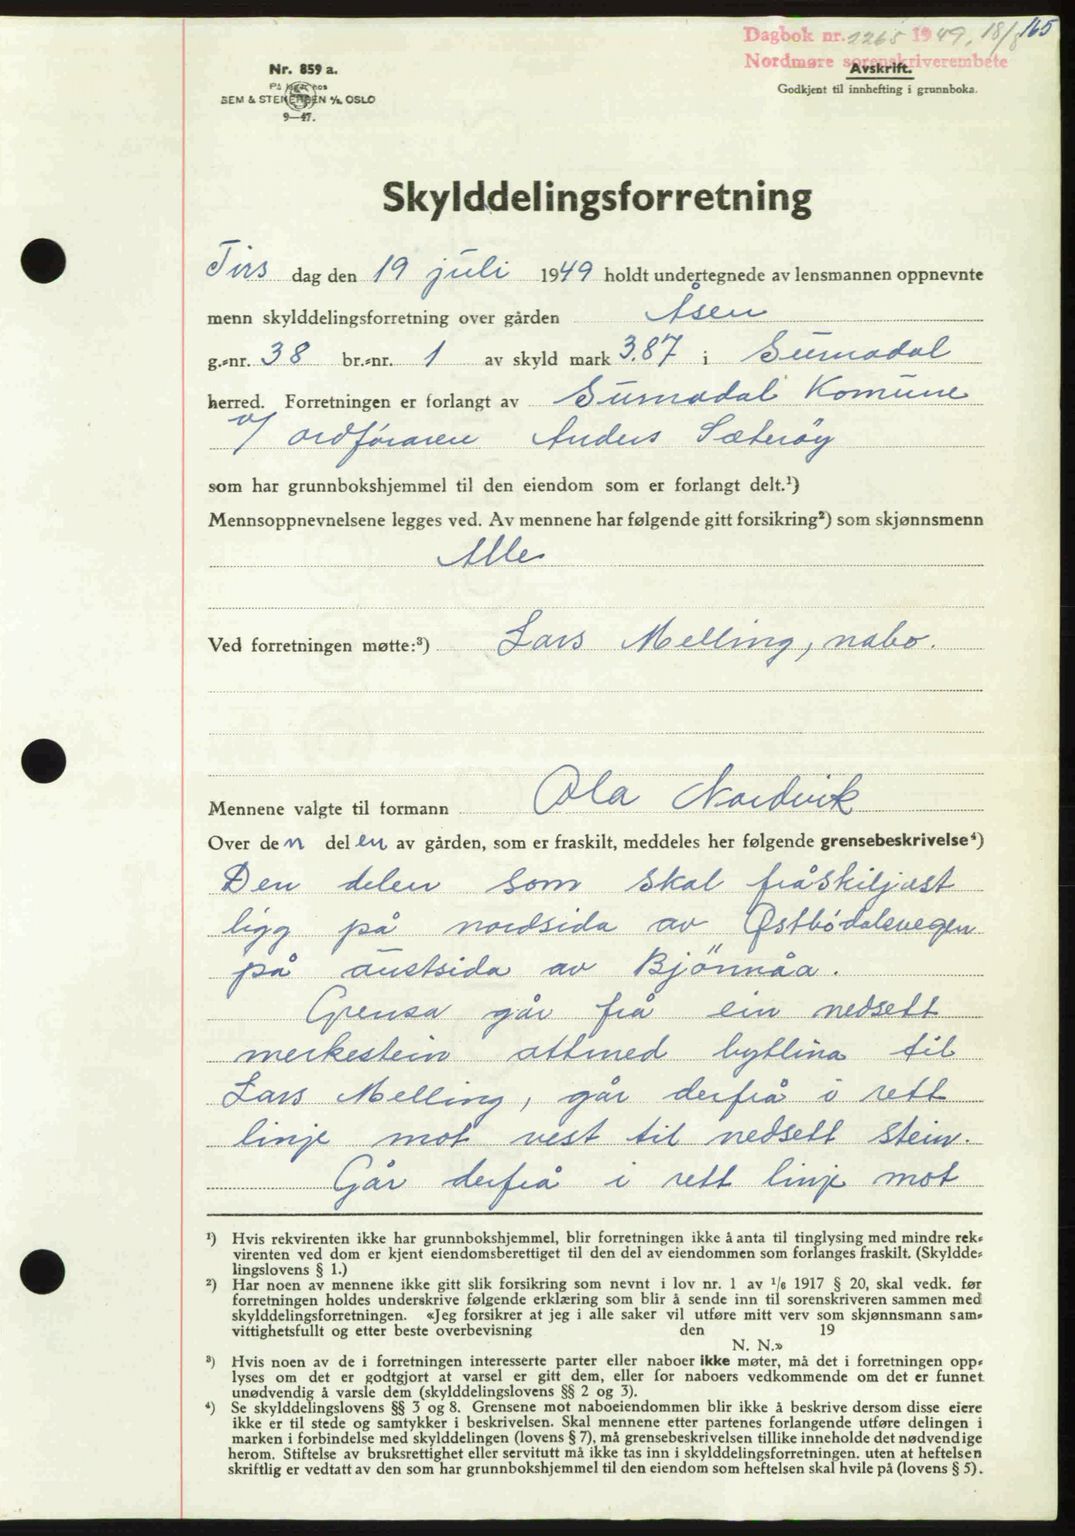 165
Dagbok nr. 2265 1949. 18/8
Nordmøre sorenskriverembete
Avskrift.
Godkjent til innhefting i grunnboka.
Nr. 859 a.
På lager hos
SEM & STENERSEN A/S, OSLO
9—47.
Skylddelingsforretning
Tirs dag den 19 juli 1949 holdt undertegnede av lensmannen oppnevnte
menn skylddelingsforretning over gården Åsen
g.-nr. 38 br.-nr. 1 av skyld mark 3.87 i Surnadal
herred. Forretningen er forlangt av Surnadal Komune
v/ ordføraren Anders Sæterøy
som har grunnbokshjemmel til den eiendom som er forlangt delt.¹)
Mennsoppnevnelsene legges ved. Av mennene har følgende gitt forsikring²) som skjønnsmenn
Alle
Ved forretningen møtte:³) Lars Melling, nabo.
Mennene valgte til formann Ola Nordvik
Over den delen av gården, som er fraskilt, meddeles her følgende grensebeskrivelse⁴)
Den delen som skal fråskiljast
ligg på nordsida av Østbødalsvegen
på austsida av Bjönnåa.
Grensa går frå ein nedsett
merkestein attmed bytlina til
Lars Melling, går derfrå i rett
linje mot vest til nedsett stein.
Går derfrå i rett linje mot
¹) Hvis rekvirenten ikke har grunnbokshjemmel, blir forretningen ikke å anta til tinglysing med mindre rek-
virenten ved dom er kjent eiendomsberettiget til den del av eiendommen som forlanges fraskilt. (Skyldde-
lingslovens § 1.)
²) Har noen av mennene ikke gitt slik forsikring som nevnt i lov nr. 1 av 1/6 1917 § 20, skal vedk. før
forretningen holdes underskrive følgende erklæring som blir å sende inn til sorenskriveren sammen med
skylddelingsforretningen. «Jeg forsikrer at jeg i alle saker vil utføre mitt verv som skjønnsmann sam-
vittighetsfullt og etter beste overbevisning den 19
N. N.»
³) Hvis noen av de i forretningen interesserte parter eller naboer ikke møter, må det i forretningen opp-
lyses om det er godtgjort at varsel er gitt dem, eller for naboers vedkommende om det er funnet
unødvendig å varsle dem (skylddelingslovens §§ 2 og 3).
⁴) Se skylddelingslovens §§ 3 og 8. Grensene mot naboeiendommen blir ikke å beskrive dersom disse eiere
ikke er til stede og samtykker i beskrivelsen. Skal mennene etter partenes forlangende utføre delingen i
marken i forbindelse med skylddelingen (lovens § 7), må grensebeskrivelsen tillike inneholde det nødvendige
herom. Stiftelse av bruksrettighet eller servitutt må ikke tas inn i skylddelingsforretningen, uten at heftelsen
skriftlig er vedtatt av den som har grunnbokshjemmel til den eiendom som heftelsen skal hvile på (lovens § 5).